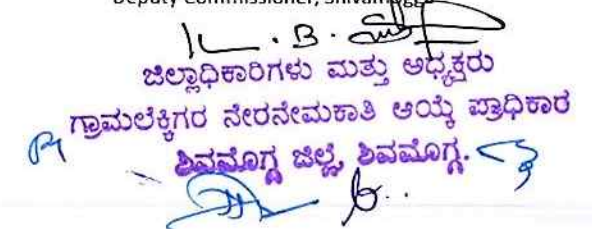 Deputy Commissioner, Shivamogga
K. B.
ಜಿಲ್ಲಾಧಿಕಾರಿಗಳು ಮತ್ತು ಅಧ್ಯಕ್ಷರು
ಗ್ರಾಮಲೆಕ್ಕಿಗರ ನೇರನೇಮಕಾತಿ ಆಯ್ಕೆ ಪ್ರಾಧಿಕಾರ
ಶಿವಮೊಗ್ಗ ಜಿಲ್ಲೆ, ಶಿವಮೊಗ್ಗ.